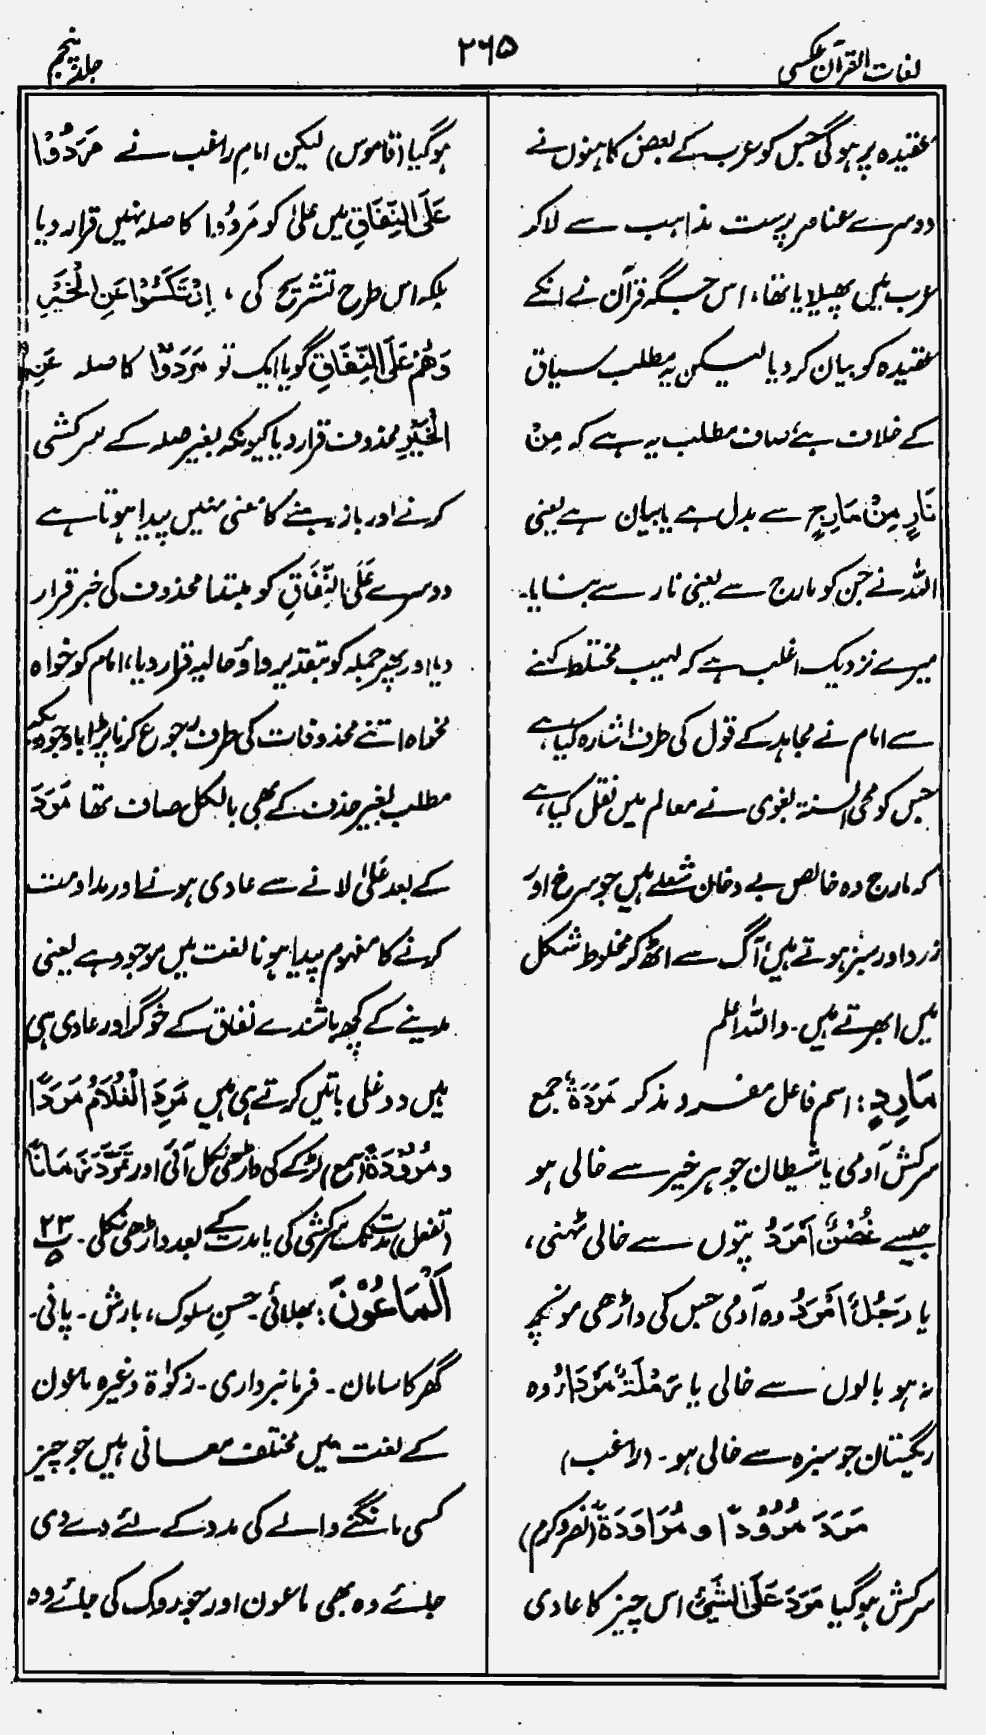 لغات القرآن عکسی
۲۶۵
جلد پنجم
عقیدہ پر ہوگی جس کو عرب کے بعض کاہنوں نے
دوسرے عناصر پرست مذاہب سے لاکر
عرب میں پھیلایا تھا، اس جگہ قرآن نے انکے
عقیدہ کو بیان کردیا لیکن یہ مطلب سیاق
کے خلاف ہے، صاف مطلب یہ ہے کہ مِنْ
نَارٍ مِنْ مَارِجٍ سے بدل ہے یا بیان ہے یعنی
اللہ نے جن کو مارج سے یعنی نار سے بنایا۔
میرے نزدیک اغلب ہے کہ لہیب مختلط کہنے
سے امام نے مجاہد کے قول کی طرف اشارہ کیا ہے،
جس کو محی السنۃ بغوی نے معالم میں نقل کیا ہے،
کہ مارج وہ خالص بے دخان شعلے ہیں جو سرخ اور
زرد اور سبز ہوتے ہیں، آگ سے اٹھ کر مخلوط شکل
میں ابھرتے ہیں۔ واللہ اعلم
مَارِدٍ: اسم فاعل مفرد مذکر مَرَدَةٌ جمع
سرکش آدمی یا شیطان جو ہر خیر سے خالی ہو
جیسے غُصْنٌ اَمْرَدُ پتوں سے خالی ٹہنی،
یا رَجُلٌ اَمْرَدُ وہ آدمی جس کی داڑھی مونچھ
نہ ہو بالوں سے خالی یا رَمْلَةٌ مَرْدَاءُ وہ
ریگستان جو سبزہ سے خالی ہو۔ (راغب)
مَرَدَ مُرُوْدًا و مُرَاوَدَةً (نصر و کرم)
سرکش ہوگیا مَرَدَ عَلَی الشَّیْئِ اس چیز کا عادی
ہوگیا (قاموس) لیکن امام راغب نے مَرَدُوْا
عَلَى النِّفَاقِ میں علیٰ کو مَرَدُوا کا صلہ نہیں قرار دیا
بلکہ اس طرح تشریح کی، اِرْتَكَسُوْا عَنِ الْخَيْرِ
وَهُمْ عَلَى النِّفَاقِ گویا ایک تو مَرَدُوْا کا صلہ عَنِ
الْخَيْرِ محذوف قرار دیا کیونکہ بغیر صلہ کے سرکشی
کرنے اور باز رہنے کا معنی نہیں پیدا ہوتا ہے
دوسرے عَلَى النِّفَاقِ کو مبتدا محذوف کی خبر قرار
دیا اور پھر جملہ کو بتقدیر واؤ حالیہ قرار دیا، امام کو خواہ
مخواہ اتنے محذوفات کی طرف رجوع کرنا پڑا باوجودیکہ
مطلب بغیر حذف کے بھی بالکل صاف تھا مَرَدَ
کے بعد عَلٰی لانے سے عادی ہونے اور مداومت
کرنے کا مفہوم پیدا ہونا لغت میں موجود ہے یعنی
مدینے کے کچھ باشندے نفاق کے خوگر اور عادی ہی
ہیں دوغلی باتیں کرتے ہی ہیں مَرِدَ الْغُلَامُ مَرَدًا
و مُرُوْدَةً (سمع) لڑکے کی داڑھی نکل آئی اور تَمَرَّدَ زَمَانًا
(تفعل) مدت تک سرکشی کی یا مدت کے بعد داڑھی نکلی۔ ۲۳
اَلْمَاعُوْنَ: بھلائی۔ حسن سلوک، بارش۔ پانی۔
گھر کا سامان۔ فرمانبرداری۔ زکوٰۃ وغیرہ ماعون
کے لغت میں مختلف معانی ہیں جو چیز
کسی مانگنے والے کی مدد کے لئے دے دی
جائے وہ بھی ماعون اور جو روک کی جائے وہ